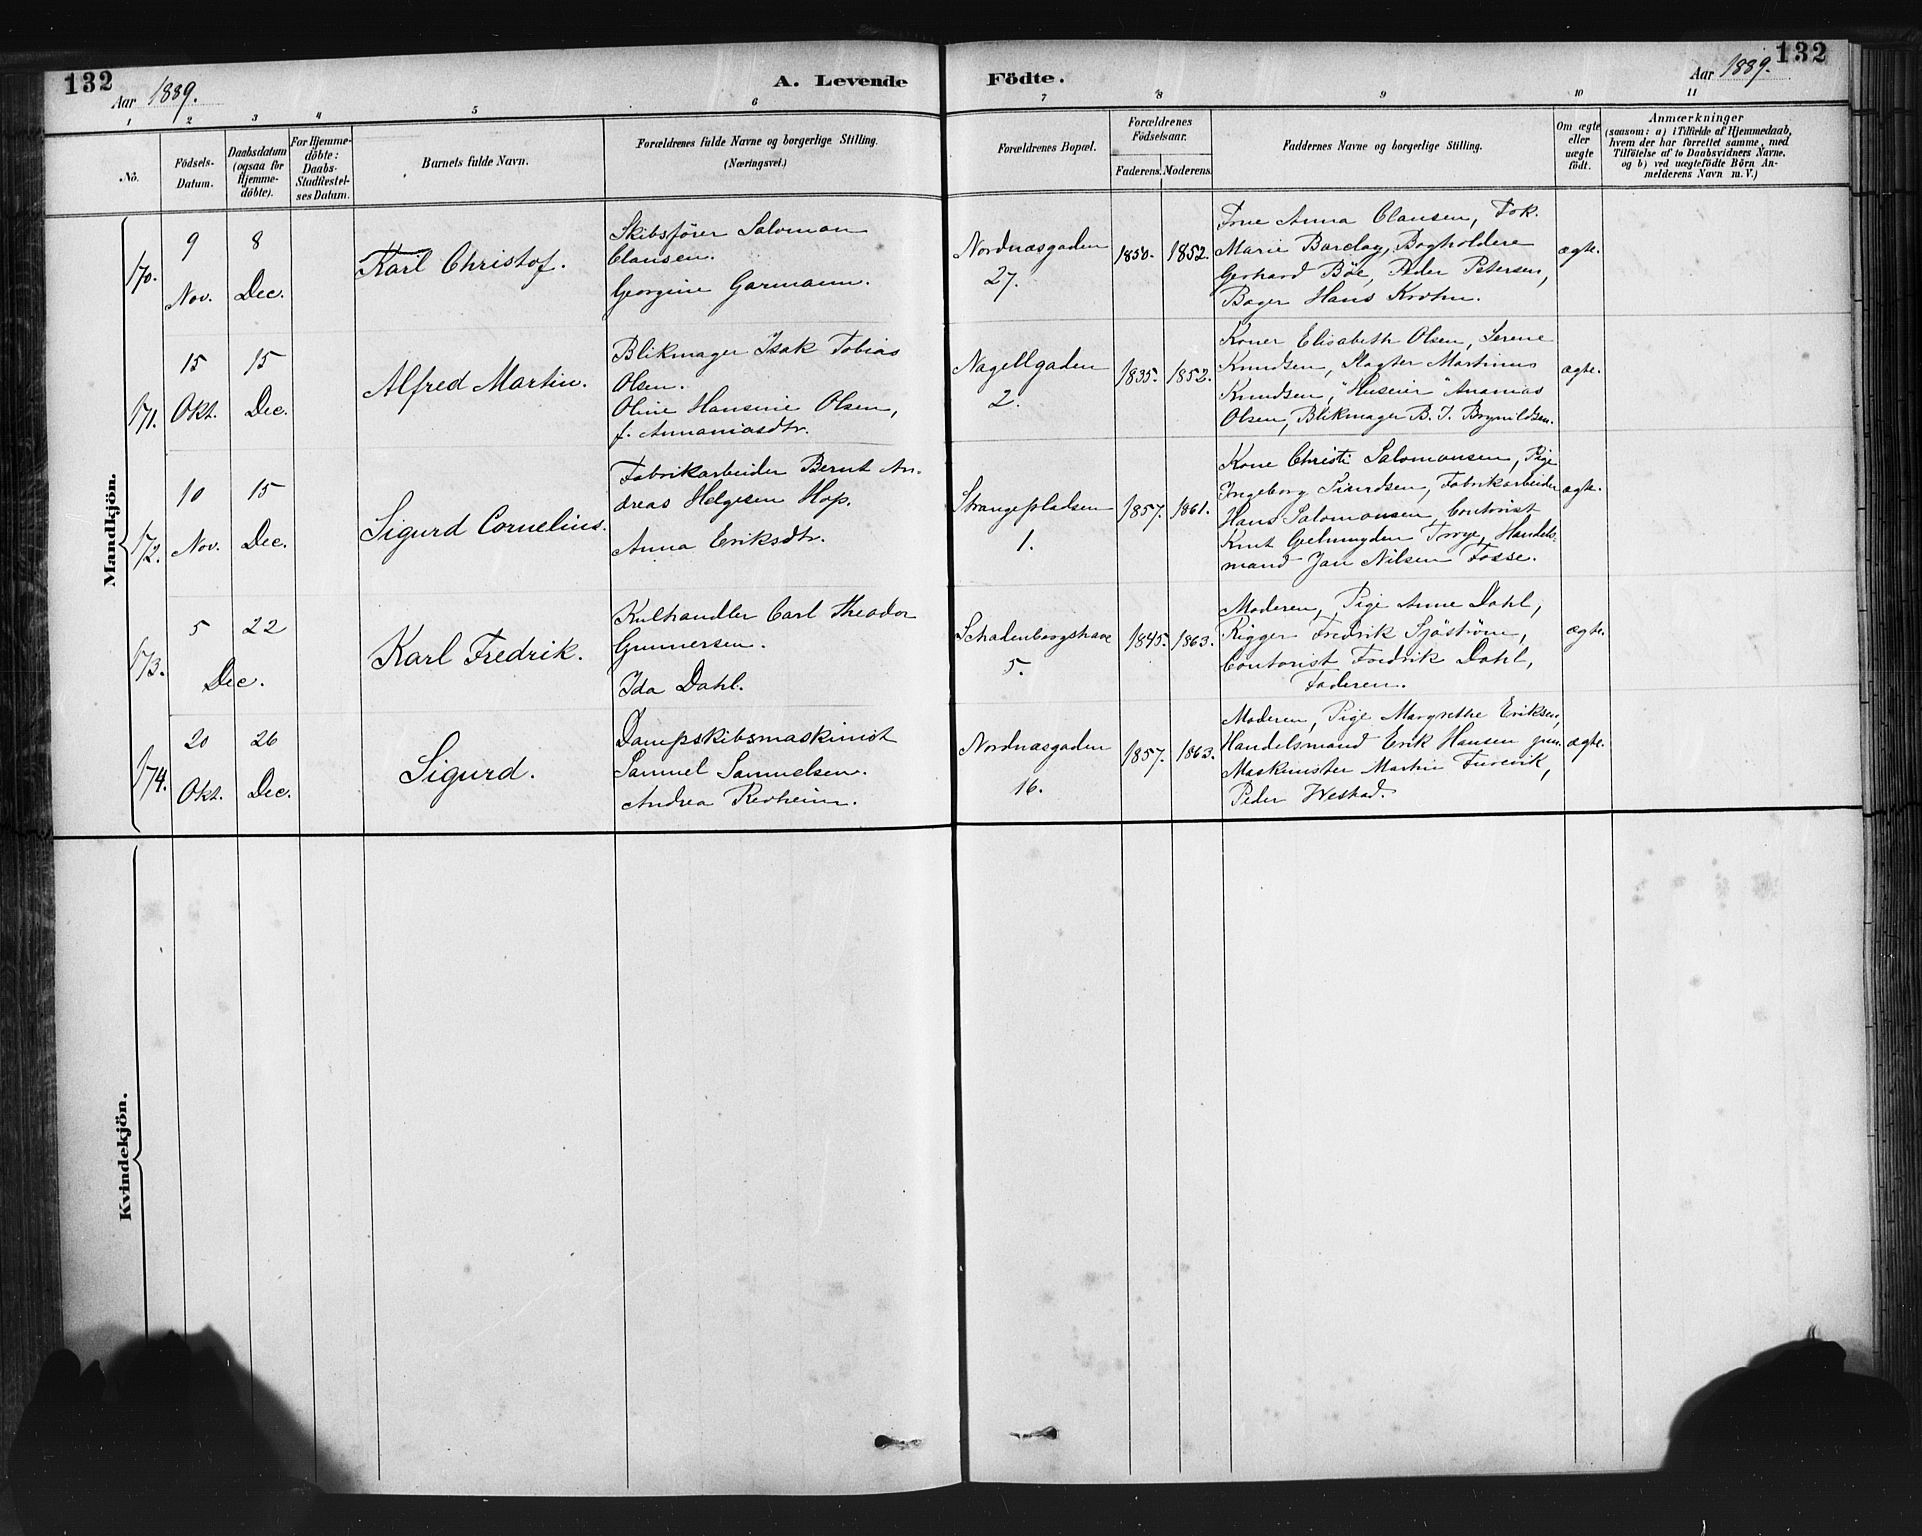 132
Aar 1889.
A. Levende Födte.
Aar 1889.
132
1 2 3 4 5 6 7 8 9 10 11
No.
Födsels-Datum.
Daabsdatum (ogsaa for Hjemme-döbte).
For Hjemme-döbte: Daabs-Stadfæstel-ses Datum.
Barnets fulde Navn.
Forældrenes fulde Navne og borgerlige Stilling. (Næringsvei.)
Forældrenes Bopæl.
Forældrenes Födselsaar.
Faderens. Moderens.
Faddernes Navne og borgerlige Stilling.
Om ægte eller uægte födt.
Anmærkninger
(saasom: a) i Tilfælde af Hjemmedaab, hvem der har forrettet samme, med Tilföielse af to Daabsvidners Navne, og b) ved uægtefödte Börn Anmelderens Navn m. V.)
Mandkjön.
170.
9 Nov.
8 Dec.
Karl Christof.
Skibsfører Salomon
Clausen.
Georgine Garmann.
Nordnæsgaden
27.
1850. 1852.
Frue Anna Clausen, Frk.
Marie Barclay, Bogholdere
Gerhard Böe, Peder Petersen,
Bager Hans Krohn.
ægte.
171.
15 Okt.
15 Dec.
Alfred Martin.
Blikmager Isak Tobias
Olsen.
Oline Hansine Olsen,
f. Annaniasdtr.
Nagellgaden
2.
1835. 1852.
Koner Elisabeth Olsen, Serene
Knudsen, Slagter Martinus
Knudsen, "Huseier" Ananias
Olsen, Blikmager B. J. Brynildsen.
ægte.
172.
10 Nov.
15 Dec.
Sigurd Cornelius.
Fabrikarbeider Bernt An-
dreas Helgesen Hop.
Anna Eriksdtr.
Strangepladsen
1.
1857. 1861.
Kone Christi Salomonsen, Pige
Ingeborg Sivertsen, Fabrikarbeider
Hans Salomonsen, Contorist
Knut Gelmuyden Torvge, Handels-
mand Jan Nilsen Fosse.
ægte.
173.
5 22
Dec.
Karl Fredrik.
Kulhandler Carl Theodor
Gunnersen.
Ida Dahl.
Schadenborgshave
5.
1845. 1863.
Moderen, Pige Anne Dahl,
Rigger Fredrik Sjöström,
Contorist Fredrik Dahl,
Faderen.
ægte.
174.
20 Okt.
26 Dec.
Sigurd.
Dampskibsmaskinist
Samuel Samuelsen.
Andrea Revheim.
Nordnæsgaden
16.
1857. 1863.
Moderen, Pige Margrethe Eriksen,
Handelsmand Erik Hansen jun.
Maskinister Martin Furevik,
Peder Westad.
ægte.
Kvindekjön.